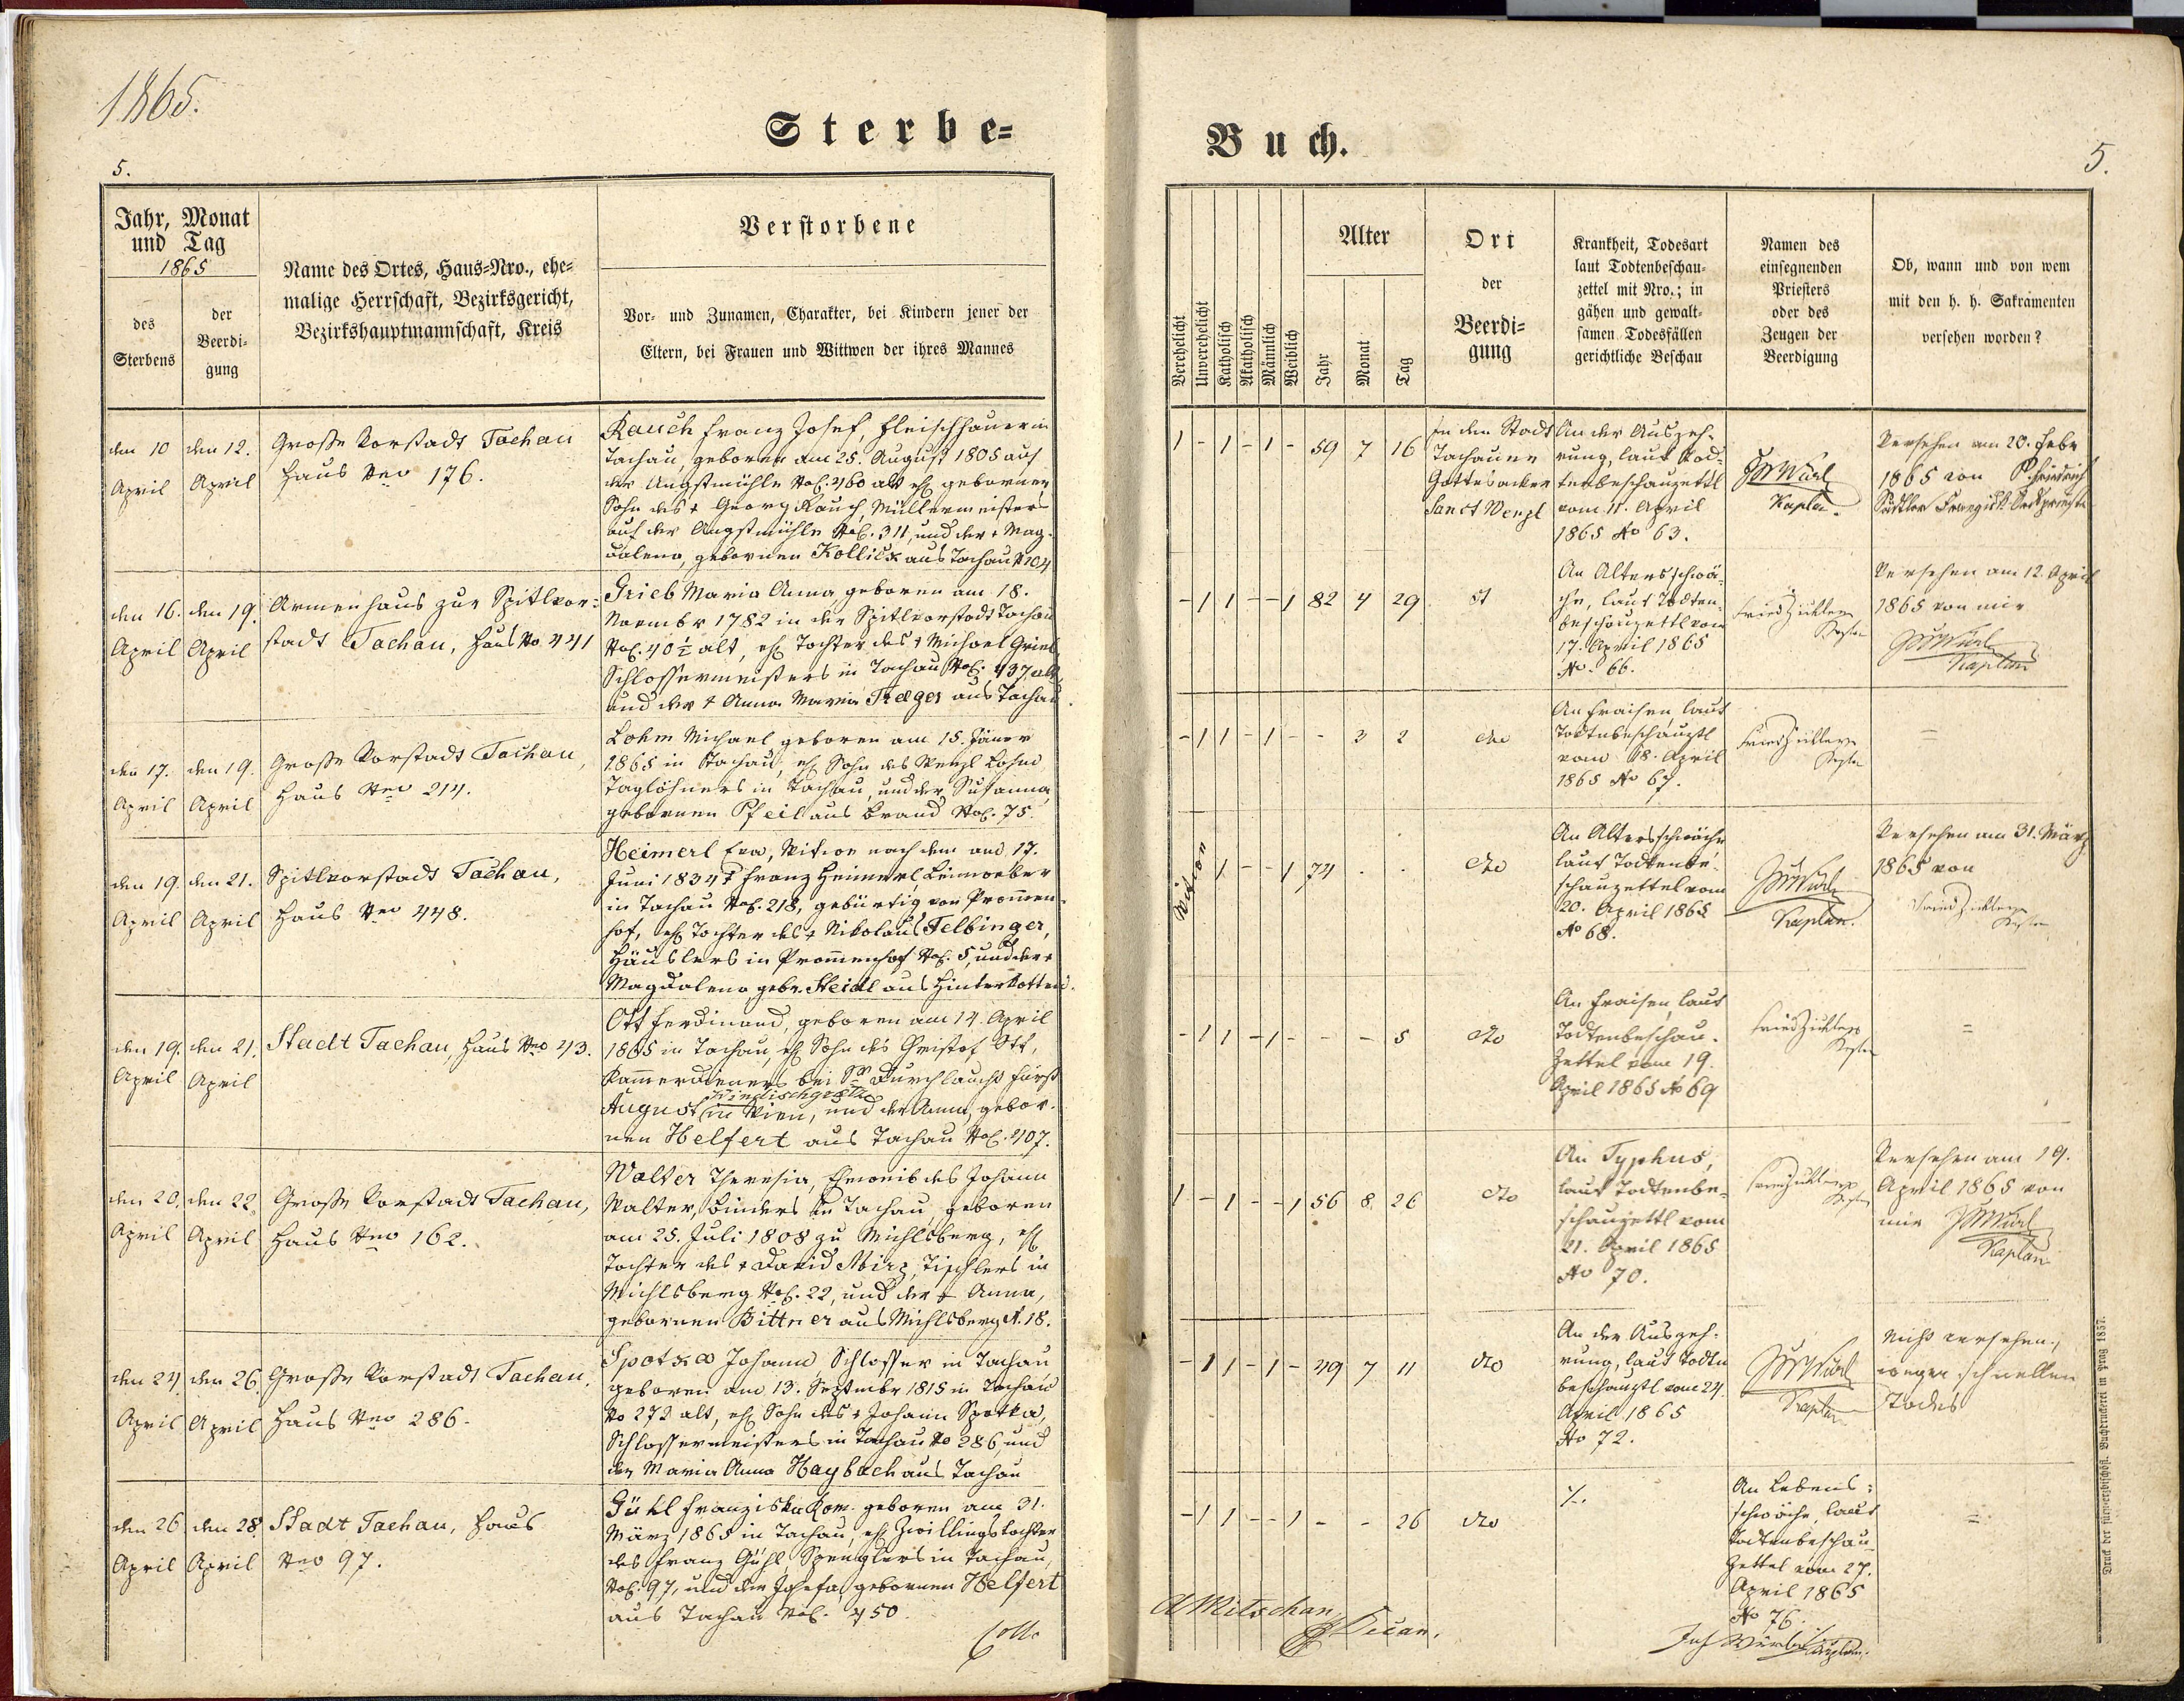 1865.
Sterbe=
5.
Jahr, Monat
und Tag
1865
des
Sterbens
der
Beerdi=
gung
Name des Ortes, Haus=Nro., ehe=
malige Herrschaft, Bezirksgericht,
Bezirkshauptmannschaft, Kreis
Verstorbene
Vor= und Zunamen, Charakter, bei Kindern jener der
Eltern, bei Frauen und Wittwen der ihres Mannes
den 10
April
den 12.
April
Große Vorstadt Tachau
Haus Nro 176.
Rauch Franz Josef, Fleischhauer in
Tachau, geboren am 25. August 1805 auf
der Angstmühle NoC. 460 alt ehl gebornen
Sohn des + Georg Rauch, Müllermeisters
auf der Angstmühle NoC. 311, und der + Mag=
dalena, gebornen Kollitz aus Tachau N 104
den 16.
April
den 19.
April
Armenhaus zur Spitlvor=
stadt Tachau, Haus No 441
Grieb Maria Anna geboren am 18.
Novembr 1782 in der Spitlvorstadt Tachau
NoC. 40 1/2 alt, ehl Tochter des + Michael Grieb
Schlossermeisters in Tachau NoC. 437 alt
und der + Anna Maria Traeger aus Tachau
den 17.
April
den 19.
April
Große Vorstadt Tachau,
Haus Nro 214.
Lohm Michael geboren am 15. Jäner
1865 in Tachau, ehl Sohn des Wenzl Lohm
Taglöhners in Tachau, und der Susanna
gebornen Pfeil aus Brand NoC. 75.
den 19.
April
den 21.
April
Spitlvorstadt Tachau,
Haus Nro 448.
Heimerl Eva, Witwe nach dem am 17.
Juni 1834 + Franz Heimerl, Leinweber
in Tachau NoC. 218, gebürtig von Promen=
hof, ehl Tochter des + Nikolaus Felbinger,
Häuslers in Promenhof NoC. 5, und der +
Magdalena gebr. Steidl aus Hinterkotten.
den 19.
April
den 21.
April
Stadt Tachau, Haus Nro 43.
Ott Ferdinand, geboren am 14. April
1865 in Tachau, ehl Sohn des Christof Ott,
Kammerdieners bei Sr Durchlaucht Fürst
Windischgrätz
August in Wien, und der Anna, gebor=
nen Helfert aus Tachau NoC. 407.
den 20.
April
den 22.
April
Große Vorstadt Tachau,
Haus Nro 162.
Walter Theresia, Eheweib des Johann
Walter, Binders in Tachau, geboren
am 25. Juli 1808 zu Michlsberg, ehl
Tochter des + David Mirz, Tischlers in
Michlsberg NoC. 22, und der + Anna,
gebornen Bittner aus Michlsberg N. 18.
den 24.
April
den 26.
April
Große Vorstadt Tachau,
Haus Nro 286.
Spotka Johann Schlosser in Tachau
geboren am 13. Septembr 1815 in Tachau
No 272 alt, ehl Sohn des + Johann Spotka,
Schlossermeisters in Tachau No 286, und
der Maria Anna Haybach aus Tachau
den 26
April
den 28
April
Stadt Tachau, Haus
Nro 97.
Gühl Franziska Rom. geboren am 31.
März 1865 in Tachau, ehl Zwillingstochter
des Franz Gühl, Spenglers in Tachau,
NoC. 97, und der Josefa, gebornen Helfert
aus Tachau NoC. 450.
Buch.
5.
Verehelicht
Unverehelicht
Katholisch
Akatholisch
Männlich
Weiblich
Alter
Jahr
Monat
Tag
Ort
der
Beerdi=
gung
Krankheit, Todesart
laut Todtenbeschau=
zettel mit Nro.; in
gähen und gewalt=
samen Todesfällen
gerichtliche Beschau
Namen des
einsegnenden
Priesters
oder des
Zeugen der
Beerdigung
Ob, wann und von wem
mit den h. h. Sakramenten
versehen worden?
1 - 1 - 1 - 59 7 16
In den Stadt
Tachauer
Gottesacker
Sanct Wenzl
An der Auszeh=
rung, laut Tod=
tenbeschauzettl
vom 11. April
1865 No 63.
Kaplan.
Versehen am 20. Febr
1865 von P. Friedrich
- 1 1 - - 1 82 4 29
An Altersschwä=
che, laut Todten=
beschauzettl vom
17. April 1865
No. 66.
Versehen am 12. April
1865 von mir
Kaplan
- 1 1 - 1 - - 3 2
dto
An Fraisen, laut
Todtnbeschauzttl
vom 18. April
1865 No 67.
=
Witwe 1 - - 1 74 . .
dto
An Altersschwäche
laut Todtenbe=
schauzettel vom
20. April 1865
No 68.
Kaplan.
Versehen am 31. März
1865 von
- 1 1 - 1 - - - 5
dto
An Fraisen, laut
Todtenbeschau=
Zettel vom 19.
April 1865 No 69
=
1 - 1 - - 1 56 8 26
dto
An Typhus,
laut Todtenbe=
schauzettl vom
21. April 1865
No 70.
Versehen am 19.
April 1865 von
mir
Kaplan
- 1 1 - 1 - 49 7 11
dto
An der Auszeh=
rung, laut Todtn
beschauzttl vom 24.
April 1865
No 72.
Kaplan
Nicht versehen,
wegen schnellen
Todes
- 1 1 - - 1 - - 26
dto
./.
An Lebens=
schwäche, laut
Todtenbeschau=
Zettel vom 27.
April 1865
No 76.
=
A Mitschan
Decan.
Kaplan.
Druck der fürsterzbischöfl. Buchdruckerei in Prag 1857.